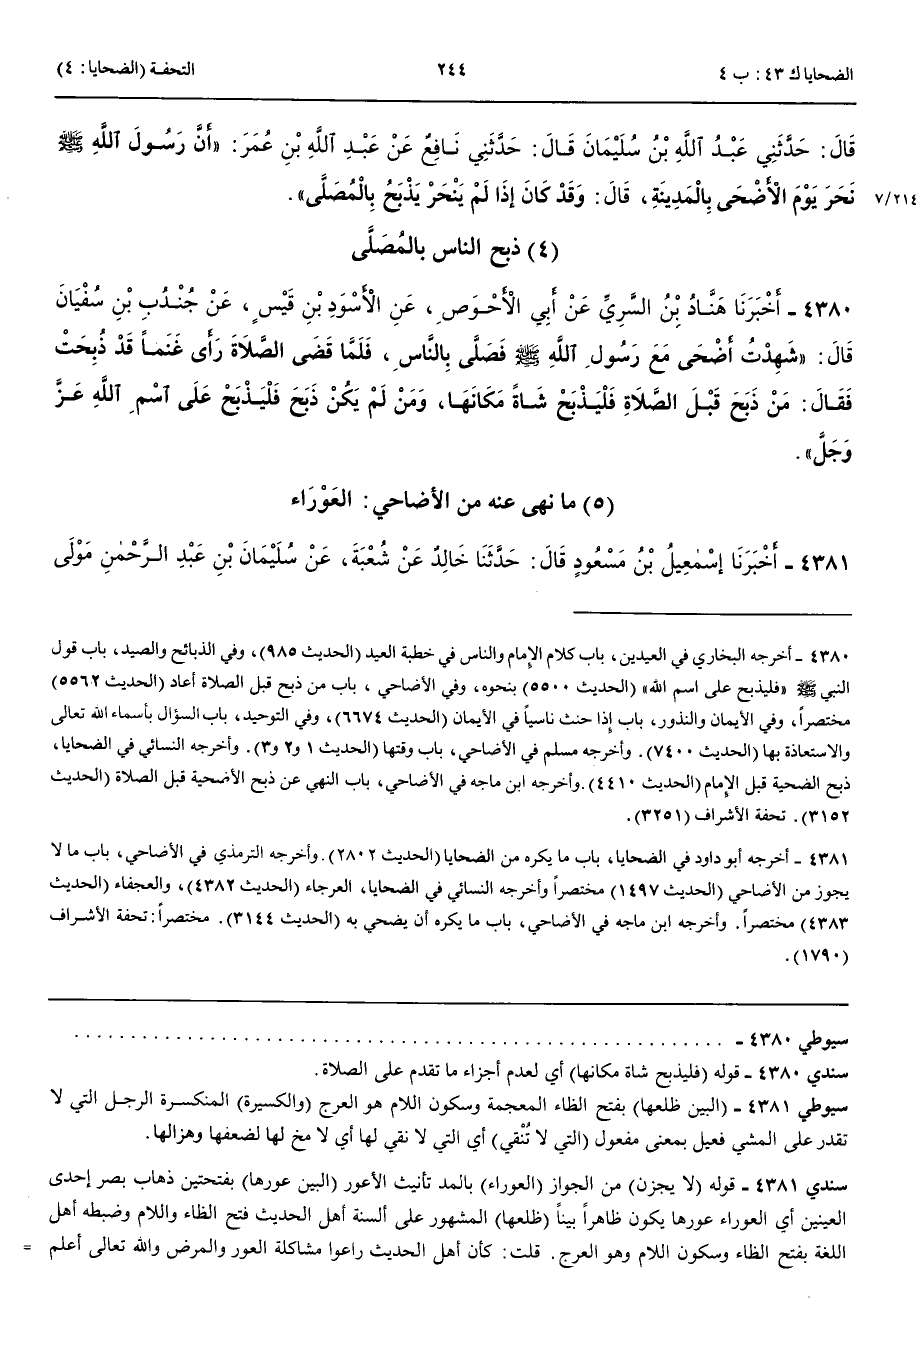 الضحايا ك ٤٣: ب ٤
٢٤٤
التحفة (الضحايا: ٤)
قَالَ: حَدَّثَنِي عَبْدُ ٱللَّهِ بْنُ سُلَيْمَانَ قَالَ: حَدَّثَنِي نَافِعٌ عَنْ عَبْدِ ٱللَّهِ بْنِ عُمَرَ: «أَنَّ رَسُولَ ٱللَّهِ ﷺ
٧/٢١٤ نَحَرَ يَوْمَ الْأَضْحَى بِالْمَدِينَةِ، قَالَ: وَقَدْ كَانَ إِذَا لَمْ يَنْحَرْ يَذْبَحُ بِالْمُصَلَّى».
(٤) ذبح الناس بالمُصَلَّى
٤٣٨٠ ـ أَخْبَرَنَا هَنَّادُ بْنُ السَّرِيِّ عَنْ أَبِي الْأَحْوَصِ، عَنِ الْأَسْوَدِ بْنِ قَيْسٍ، عَنْ جُنْدُبِ بْنِ سُفْيَانَ
قَالَ: «شَهِدْتُ أَضْحَى مَعَ رَسُولِ ٱللَّهِ ﷺ فَصَلَّى بِالنَّاسِ، فَلَمَّا قَضَى الصَّلَاةَ رَأَى غَنَماً قَدْ ذُبِحَتْ
فَقَالَ: مَنْ ذَبَحَ قَبْلَ الصَّلَاةِ فَلْيَذْبَحْ شَاةً مَكَانَهَا، وَمَنْ لَمْ يَكُنْ ذَبَحَ فَلْيَذْبَحْ عَلَى ٱسْمِ ٱللَّهِ عَزَّ
وَجَلَّ».
(٥) ما نهى عنه من الأضاحي: العَوْرَاء
٤٣٨١ ـ أَخْبَرَنَا إِسْمٰعِيلُ بْنُ مَسْعُودٍ قَالَ: حَدَّثَنَا خَالِدٌ عَنْ شُعْبَةَ، عَنْ سُلَيْمَانَ بْنِ عَبْدِ الرَّحْمٰنِ مَوْلَى
٤٣٨٠ ـ أخرجه البخاري في العيدين، باب كلام الإمام والناس في خطبة العيد (الحديث ٩٨٥)، وفي الذبائح والصيد، باب قول
النبي ﷺ «فليذبح على اسم الله» (الحديث ٥٥٠٠) بنحوه، وفي الأضاحي ، باب من ذبح قبل الصلاة أعاد (الحديث ٥٥٦٢)
مختصراً، وفي الأيمان والنذور، باب إذا حنث ناسياً في الأيمان (الحديث ٦٦٧٤)، وفي التوحيد، باب السؤال بأسماء الله تعالى
والاستعاذة بها (الحديث ٧٤٠٠). وأخرجه مسلم في الأضاحي، باب وقتها (الحديث ١ و٢ و٣). وأخرجه النسائي في الضحايا،
ذبح الضحية قبل الإمام (الحديث ٤٤١٠). وأخرجه ابن ماجه في الأضاحي، باب النهي عن ذبح الأضحية قبل الصلاة (الحديث
٣١٥٢). تحفة الأشراف (٣٢٥١).
٤٣٨١ ـ أخرجه أبو داود في الضحايا، باب ما يكره من الضحايا (الحديث ٢٨٠٢). وأخرجه الترمذي في الأضاحي، باب ما لا
يجوز من الأضاحي (الحديث ١٤٩٧) مختصراً وأخرجه النسائي في الضحايا، العرجاء (الحديث ٤٣٨٢)، والعجفاء (الحديث
٤٣٨٣) مختصراً. وأخرجه ابن ماجه في الأضاحي، باب ما يكره أن يضحي به (الحديث ٣١٤٤). مختصراً: تحفة الأشراف
(١٧٩٠).
سيوطي ٤٣٨٠ ـ . . . . . . . . . . . . . . . . . . . . . . . . . . . . . . . . . . . . . . . .
سندي ٤٣٨٠ ـ قوله (فليذبح شاة مكانها) أي لعدم أجزاء ما تقدم على الصلاة.
سيوطي ٤٣٨١ ـ (البين ظلعها) بفتح الظاء المعجمة وسكون اللام هو العرج (والكسيرة) المنكسرة الرجل التي لا
تقدر على المشي فعيل بمعنى مفعول (التي لا تُنْقي) أي التي لا نقي لها أي لا مخ لها لضعفها وهزالها.
سندي ٤٣٨١ ـ قوله (لا يجزن) من الجواز (العوراء) بالمد تأنيث الأعور (البين عورها) بفتحتين ذهاب بصر إحدى
العينين أي العوراء عورها يكون ظاهراً بيناً (ظلعها) المشهور على ألسنة أهل الحديث فتح الظاء واللام وضبطه أهل
اللغة بفتح الظاء وسكون اللام وهو العرج. قلت: كأن أهل الحديث راعوا مشاكلة العور والمرض والله تعالى أعلم =